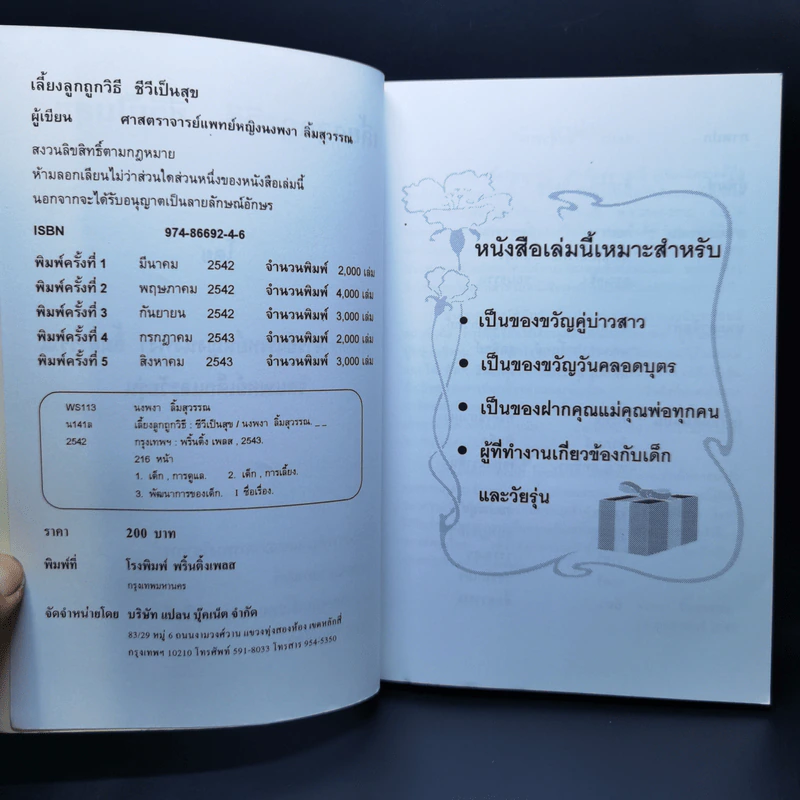 เลี้ยงลูกถูกวิธี ชีวีเป็นสุข
ผู้เขียน ศาสตราจารย์แพทย์หญิงนงพงา ลิ้มสุวรรณ
สงวนลิขสิทธิ์ตามกฎหมาย
ห้ามลอกเลียนไม่ว่าส่วนใดส่วนหนึ่งของหนังสือเล่มนี้
นอกจากจะได้รับอนุญาตเป็นลายลักษณ์อักษร
ISBN 974-86692-4-6
พิมพ์ครั้งที่ 1 มีนาคม 2542 จำนวนพิมพ์ 2,000 เล่ม
พิมพ์ครั้งที่ 2 พฤษภาคม 2542 จำนวนพิมพ์ 4,000 เล่ม
พิมพ์ครั้งที่ 3 กันยายน 2542 จำนวนพิมพ์ 3,000 เล่ม
พิมพ์ครั้งที่ 4 กรกฎาคม 2543 จำนวนพิมพ์ 2,000 เล่ม
พิมพ์ครั้งที่ 5 สิงหาคม 2543 จำนวนพิมพ์ 3,000 เล่ม
WS113 นงพงา ลิ้มสุวรรณ
น141ล เลี้ยงลูกถูกวิธี : ชีวีเป็นสุข / นงพงา ลิ้มสุวรรณ. _ _
2542 กรุงเทพฯ : พริ้นติ้ง เพลส , 2543.
216 หน้า
1. เด็ก , การดูแล. 2. เด็ก , การเลี้ยง.
3. พัฒนาการของเด็ก. I ชื่อเรื่อง.
ราคา 200 บาท
พิมพ์ที่ โรงพิมพ์ พริ้นติ้งเพลส
กรุงเทพมหานคร
จัดจำหน่ายโดย บริษัท แปลน บุ๊คเน็ต จำกัด
83/29 หมู่ 6 ถนนงามวงศ์วาน แขวงทุ่งสองห้อง เขตหลักสี่
กรุงเทพฯ 10210 โทรศัพท์ 591-8033 โทรสาร 954-5350
หนังสือเล่มนี้เหมาะสำหรับ
• เป็นของขวัญคู่บ่าวสาว
• เป็นของขวัญวันคลอดบุตร
• เป็นของฝากคุณแม่คุณพ่อทุกคน
• ผู้ที่ทำงานเกี่ยวข้องกับเด็ก
และวัยรุ่น